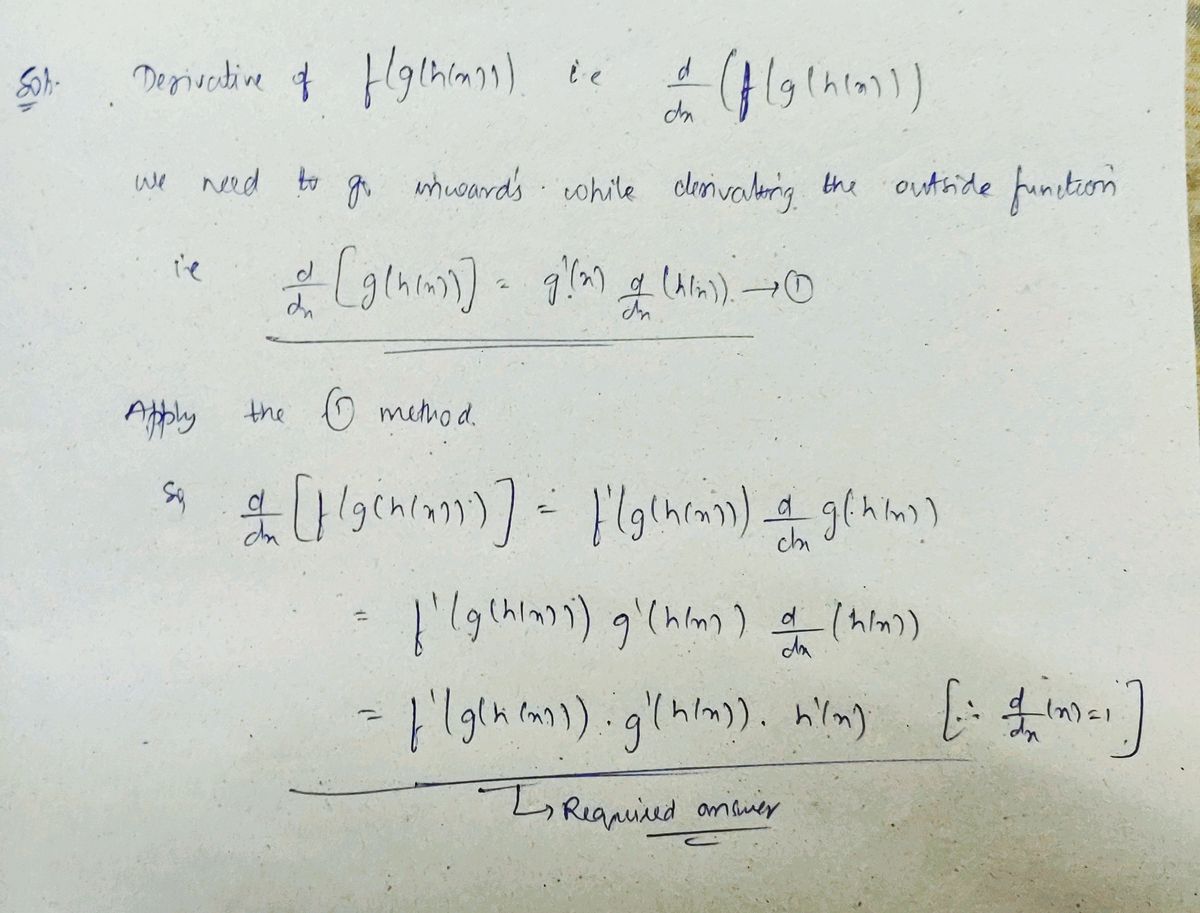 Soln. Derivative of f(g(h(x))) i.e d/dx (f(g(h(x)))
we need to go inwards while derivating the outside function
i.e d/dx [g(h(x))] = g'(x) d/dx (h(x)). → ①
Apply the ① method.
So, d/dx [f(g(h(x)))] = f'(g(h(x))) d/dx g(h(x))
= f'(g(h(x))) g'(h(x)) d/dx (h(x))
= f'(g(h(x))) . g'(h(x)) . h'(x) [∵ d/dx (x) = 1]
↳ Required answer